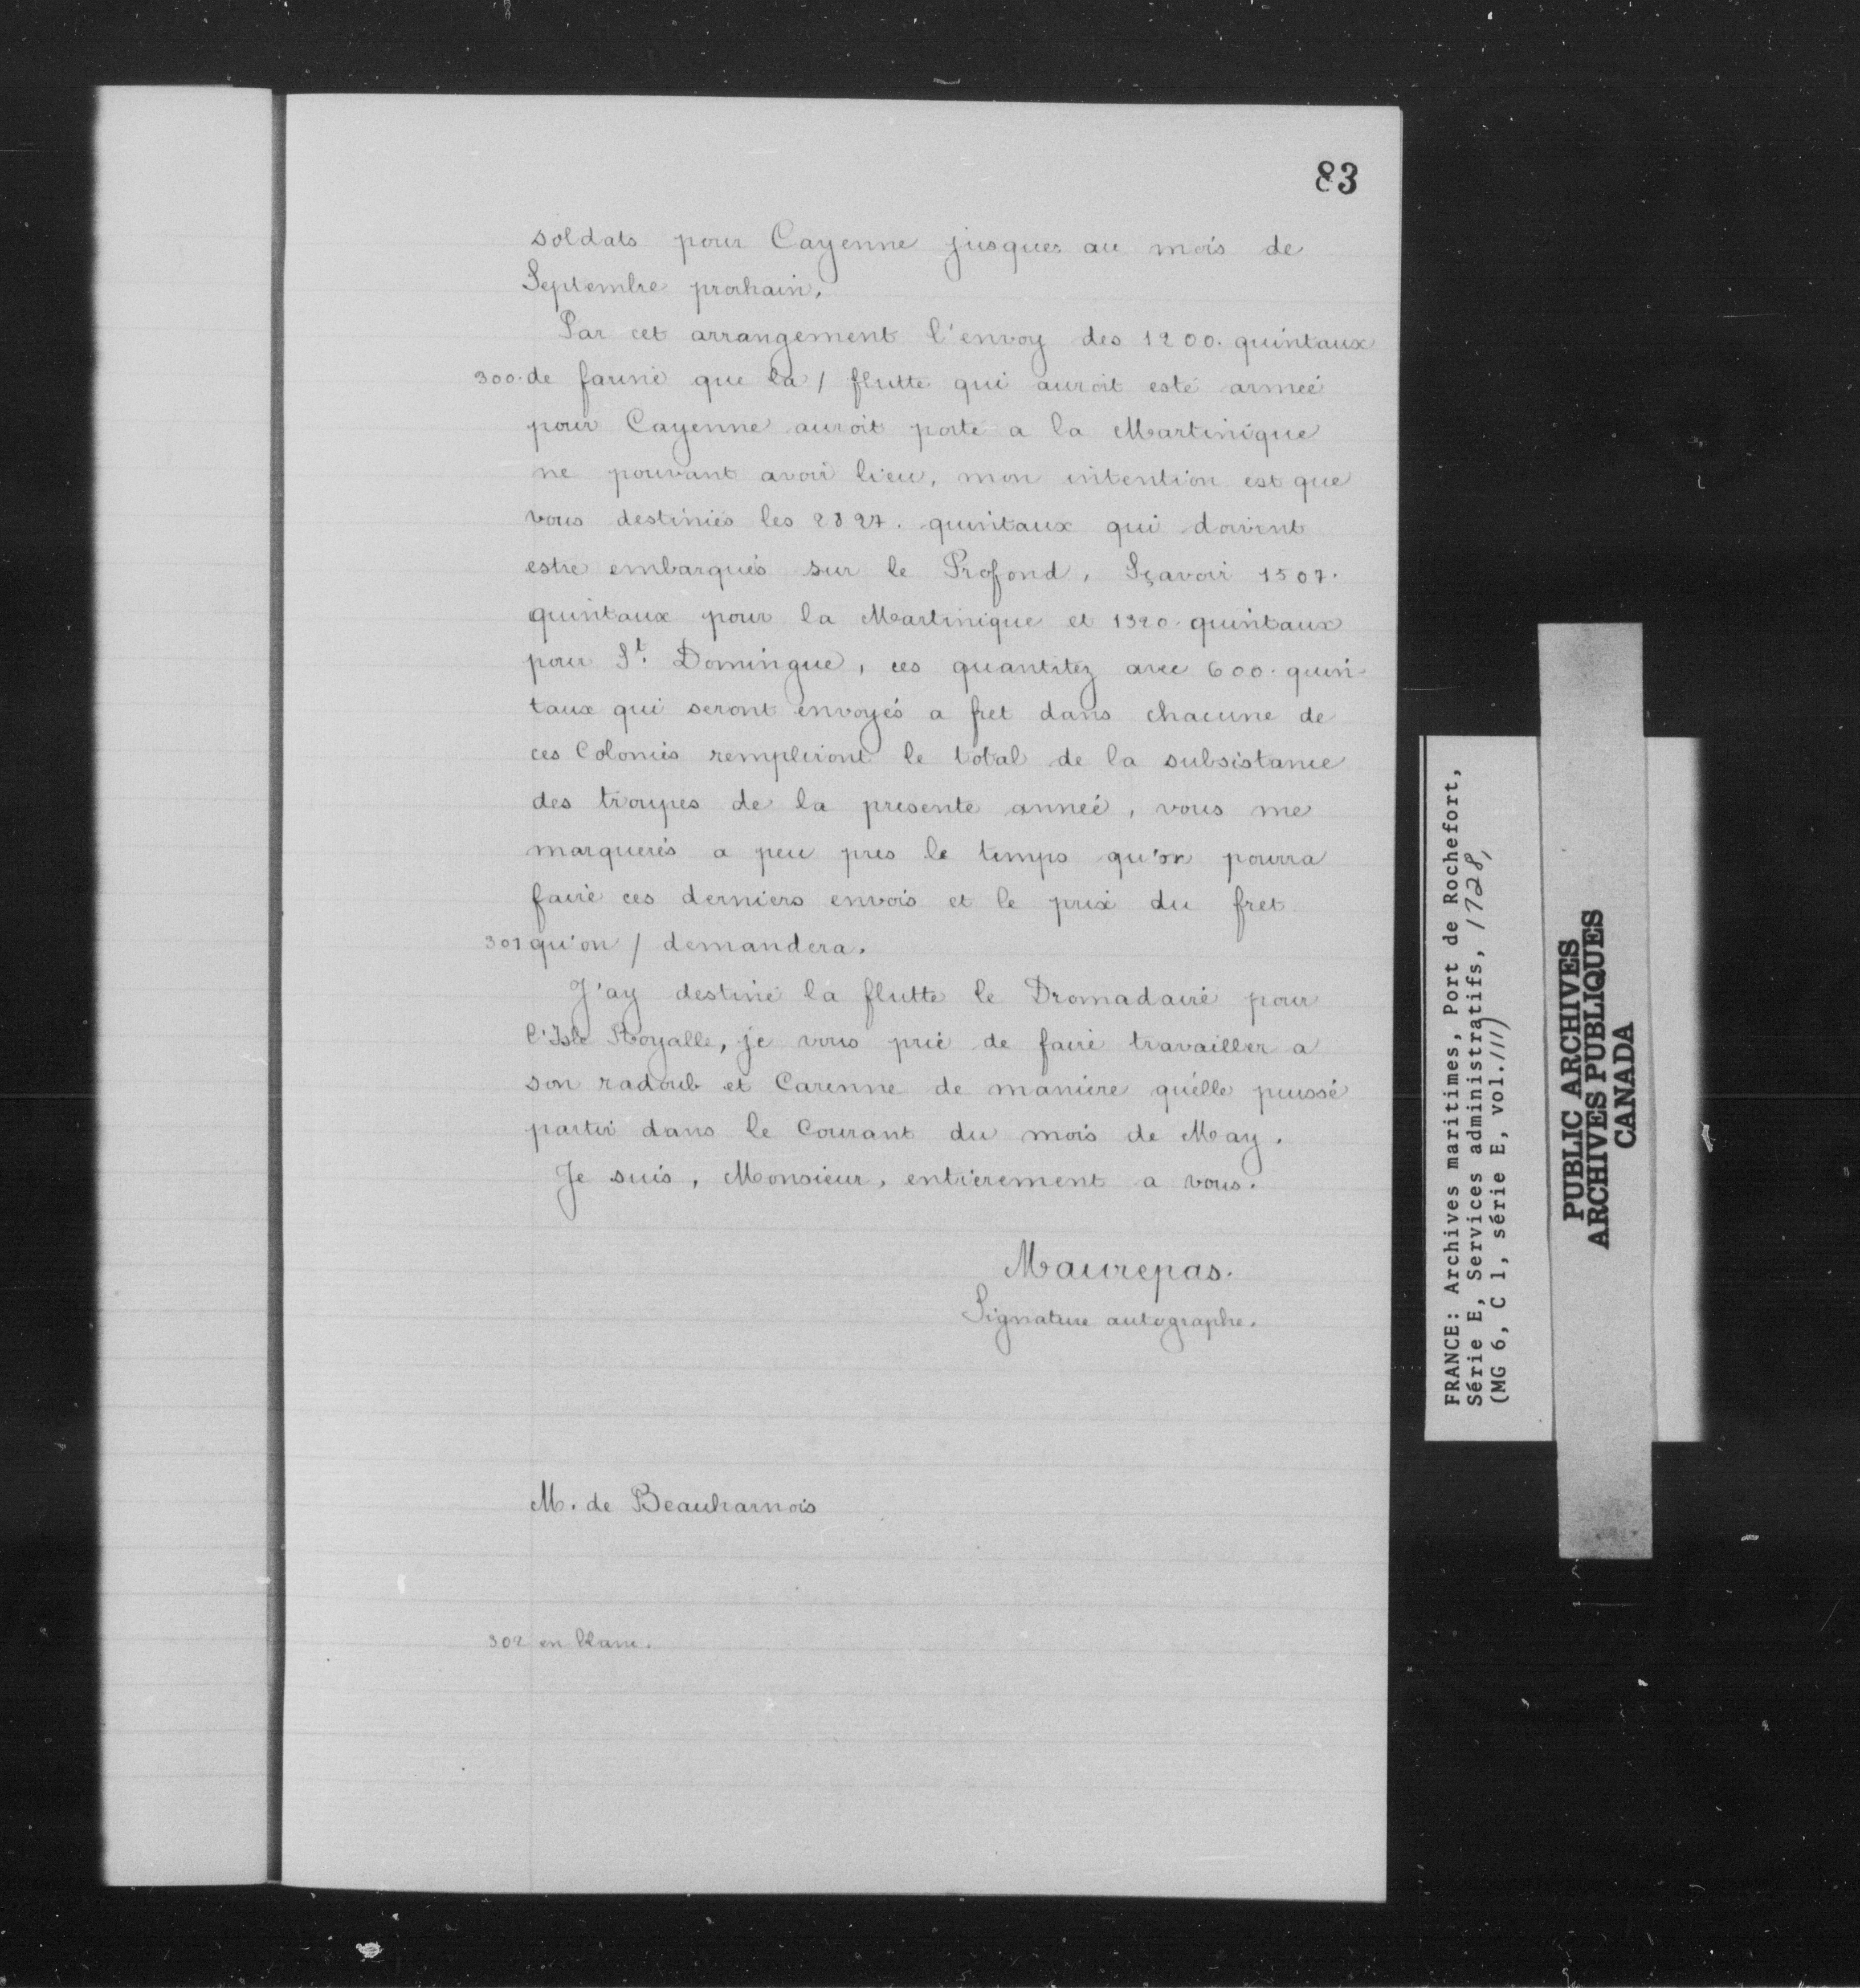 83
soldats pour Cayenne jusques au mois de
Septembre prochain.
Par cet arrangement l'envoy des 1200. quintaux
300. de farine que la / flutte qui auroit esté armeé
pour Cayenne auroit porté a la Martinique
ne pouvant avoir lieu, mon intention est que
vous destiniés les 2827. quintaux qui doivent
estre embarqués sur le Profond, Sçavoir 1507.
quintaux pour la Martinique et 1320. quintaux
pour St. Domingue, ces quantitez avec 600. quin-
taux qui seront envoyés a fret dans chacune de
ces Colonies rempliront le total de la subsistance
des troupes de la presente anneé, vous me
marquerés a peu pres le temps qu'on pourra
faire ces derniers envois et le prix du fret
301 qu'on / demandera.
J'ay destiné la flutte le Dromadaire pour
l'Isle Royalle, je vous prie de faire travailler a
son radoub et Carenne de maniere qu'elle puisse
partir dans le Courant du mois de May.
Je suis, Monsieur, entièrement a vous.
Maurepas.
Signature autographe.
M. de Beauharnois
302 en blanc.
FRANCE: Archives maritimes, Port de Rochefort,
Série E, Services administratifs, 1728,
(MG 6, C 1, série E, vol. 111)
PUBLIC ARCHIVES
ARCHIVES PUBLIQUES
CANADA